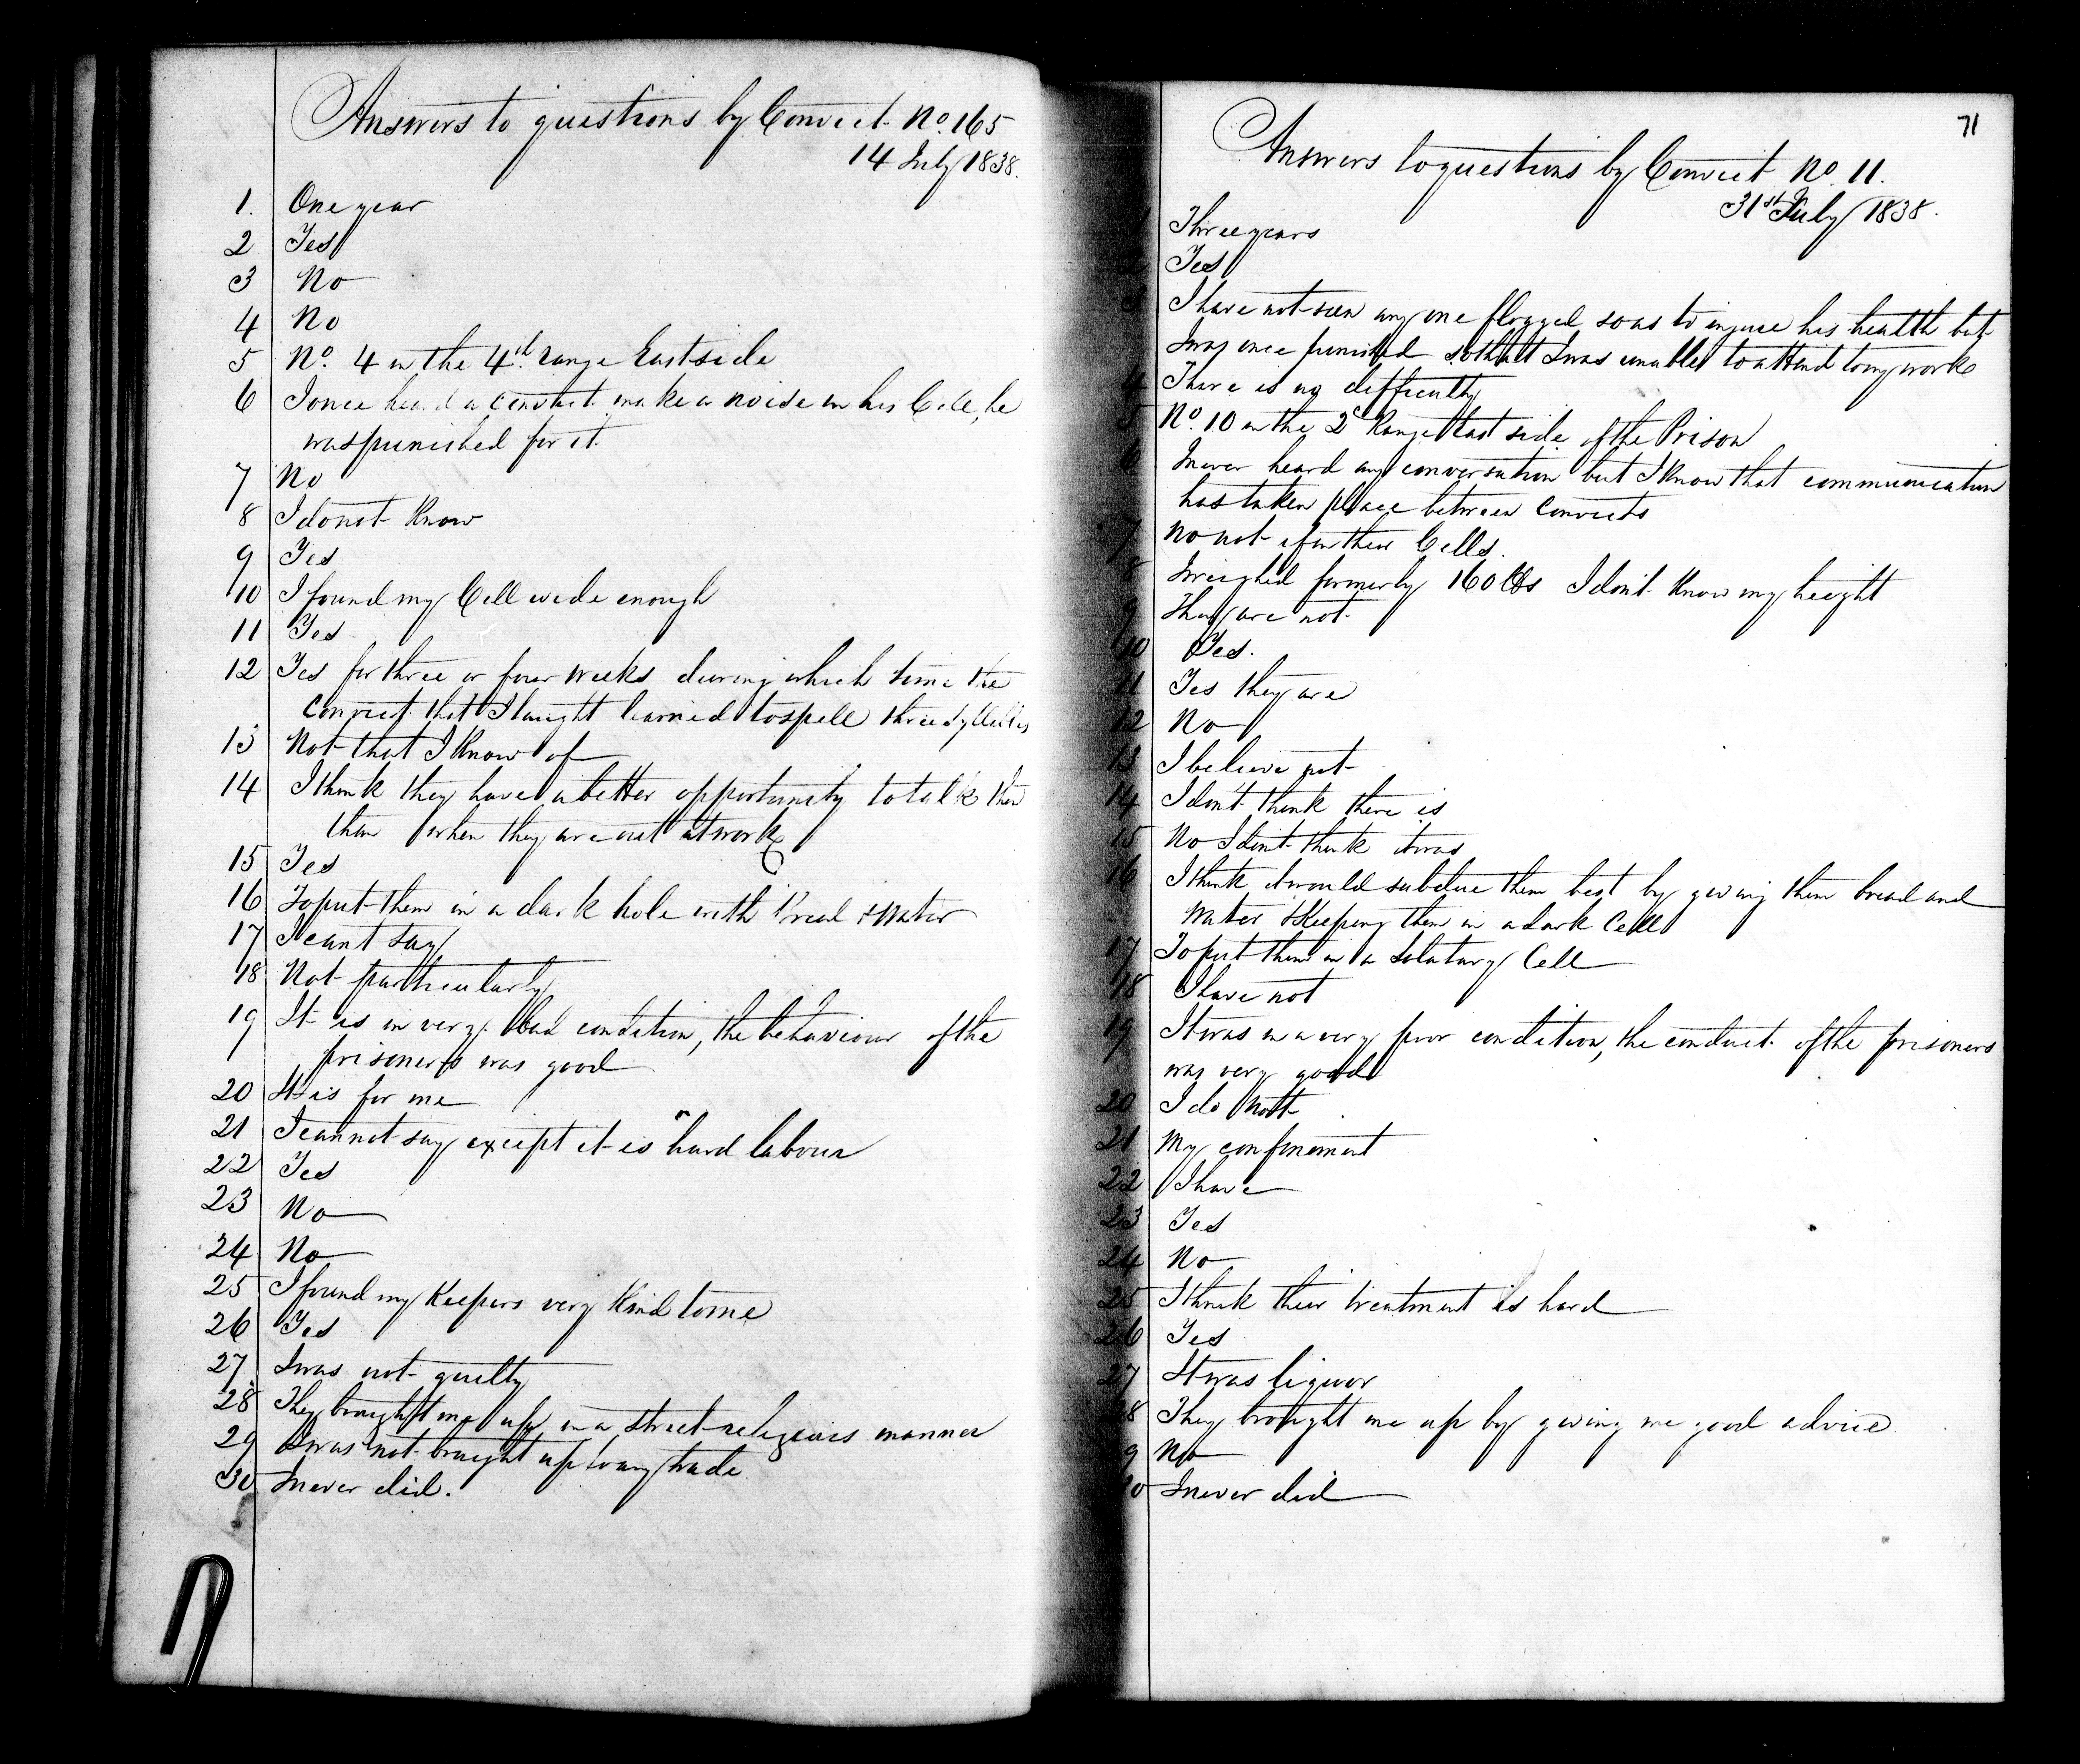 Answers to questions by Convict No. 165
14 July 1838.
1. One year
2 Yes
3 No
4 No
5 No. 4 in the 4th range East side
6 I once heard a Convict make a noise in his Cell, he
was punished for it.
7 No
8 I do not Know
9 Yes
10 I found my Cell wide enough
11 Yes
12 Yes for three or four weeks during which time the
Convict that I taught learned to spell three syllables
13 Not that I Know of
14 I think they have a better opportunity to talk then
than when they are out at work
15 Yes
16 To put them in a dark hole with Bread & Water
17 I cant say
18 Not particularly
19 It is in very bad condition, the behaviour of the
prisoners was good
20 It is for me
21 I cannot say except it is hard labour
22 Yes
23 No
24 No
25 I found my Keepers very Kind to me
26 Yes
27 I was not guilty
28 They brought me up in a strict religious manner
29 I was not brought up to any trade.
30 I never did.
71
Answers to questions by Convict No. 11.
31st July 1838.
1 Three years
2 Yes
3 I have not seen any one flogged so as to injure his health but
I was once punished so that I was unable to attend to my work
4 There is no difficulty
5 No. 10 in the 2d Range East side of the Prison
6 I never heard any conversation but I Know that communication
has taken place between Convicts
7 No not if in their Cells.
8 I weighed formerly 160 lbs I don't Know my height
9 They are not
10 Yes.
11 Yes they are
12 No
13 I believe not
14 I don't think there is
15 No I don't think it was
16 I think it would subdue them best by giving them bread and
Water & Keeping them in a dark Cell
17 To put them in a Solutary Cell
18 I have not
19 It was in a very poor condition, the conduct of the prisoners
was very good
20 I do not
21 My confinement
22 I have
23 Yes
24 No
25 I think their treatment is hard
26 Yes
27 It was liquor
8 They brought me up by giving me good advice
9 No
0 I never did